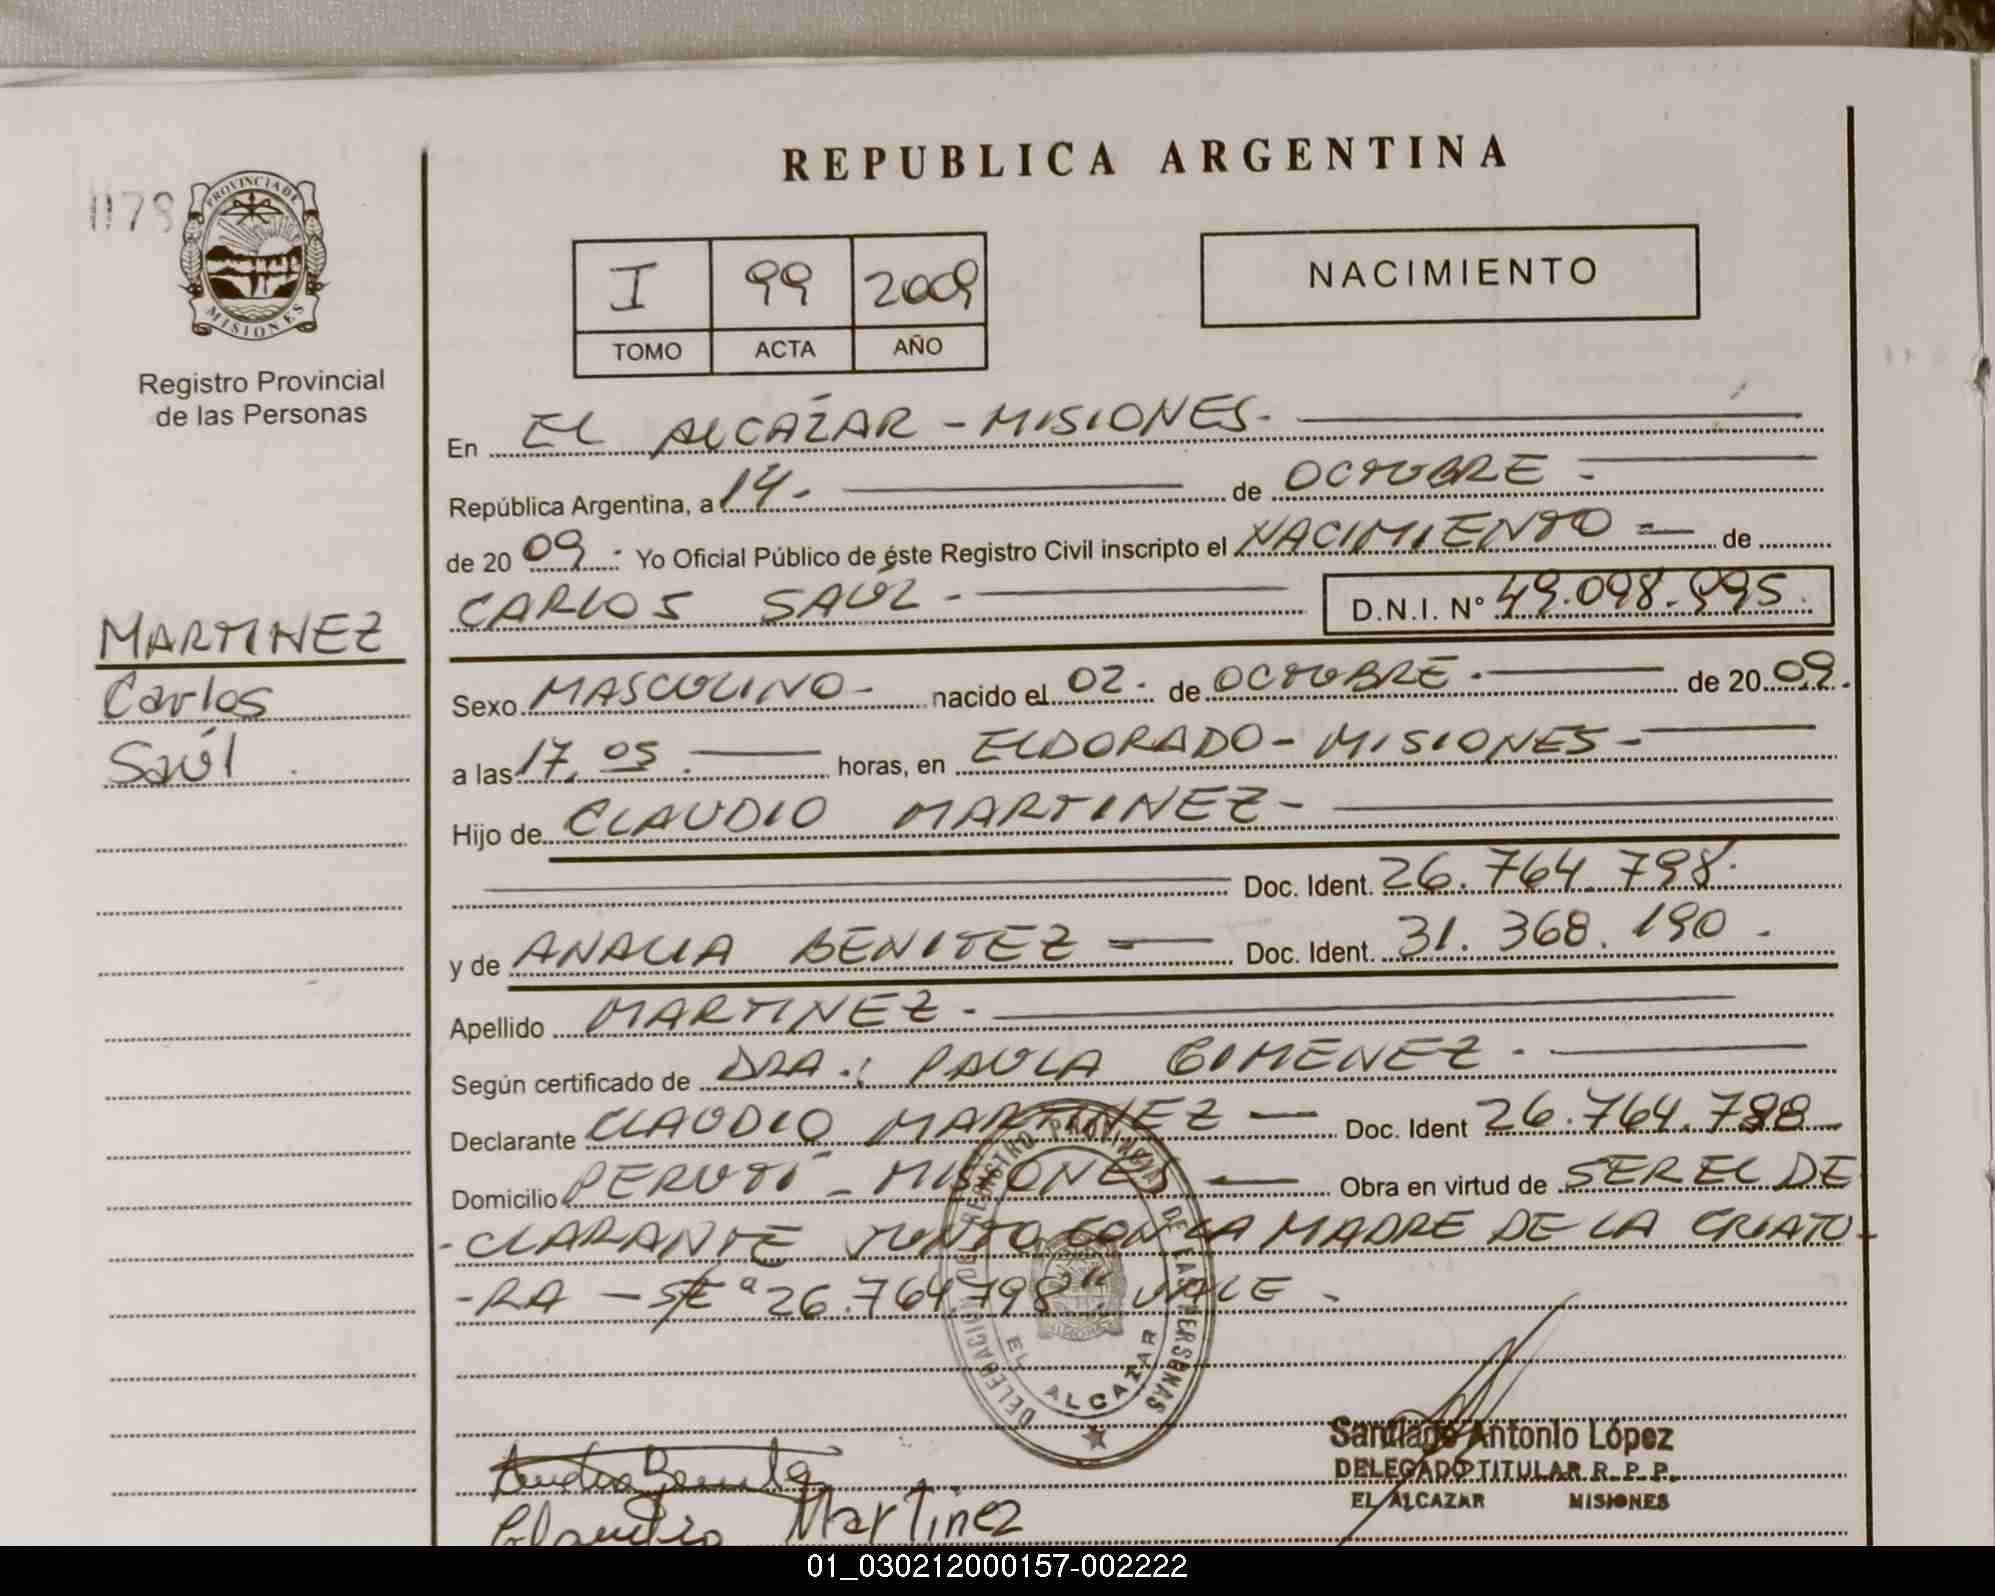 REPUBLICA ARGENTINA
1178
PROVINCIA DE
MISIONES
Registro Provincial
de las Personas
I 99 2009
TOMO ACTA AÑO
NACIMIENTO
En EL ALCAZAR - MISIONES.
República Argentina, a 14. de OCTUBRE.
de 20 09. Yo Oficial Público de éste Registro Civil inscripto el NACIMIENTO de
CARLOS SAÚL - D.N.I. N° 49.098.995.
MARTINEZ
Carlos
Saúl
Sexo MASCULINO - nacido el 02. de OCTUBRE. de 20 09.
a las 17.05. horas, en ELDORADO - MISIONES -
Hijo de CLAUDIO MARTINEZ -
Doc. Ident. 26.764.798.
y de ANALIA BENITEZ Doc. Ident. 31.368.190.
Apellido MARTINEZ.
Según certificado de DRA.: PAULA GIMENEZ.
Declarante CLAUDIO MARTINEZ Doc. Ident 26.764.798
Domicilio PERUTÍ - MISIONES Obra en virtud de SER EL DE
-CLARANTE JUNTO CON LA MADRE DE LA CRIATU-
-RA - SE "26.764.798". VALE -
DELEGACION DE REGISTRO PROVINCIAL DE LAS PERSONAS
EL ALCAZAR
Santiago Antonio López
DELEGADO TITULAR R. P. P.
EL ALCAZAR MISIONES
Claudio Martinez
01_030212000157-002222